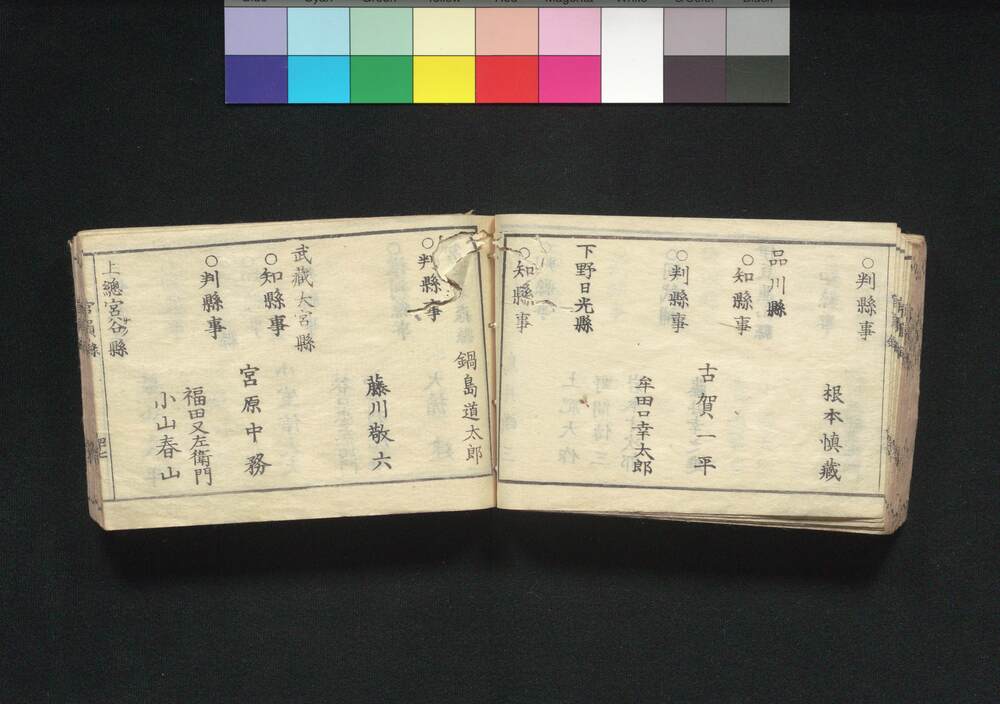 ○判縣事
根本慎藏
品川縣
○知縣事
古賀一平
○判縣事
牟田口幸太郎
下野日光縣
○知縣事
鍋島道太郎
○判縣事
藤川敬六
武藏大宮縣
○知縣事
宮原中務
○判縣事
福田又左衛門
小山春山
上總宮谷縣